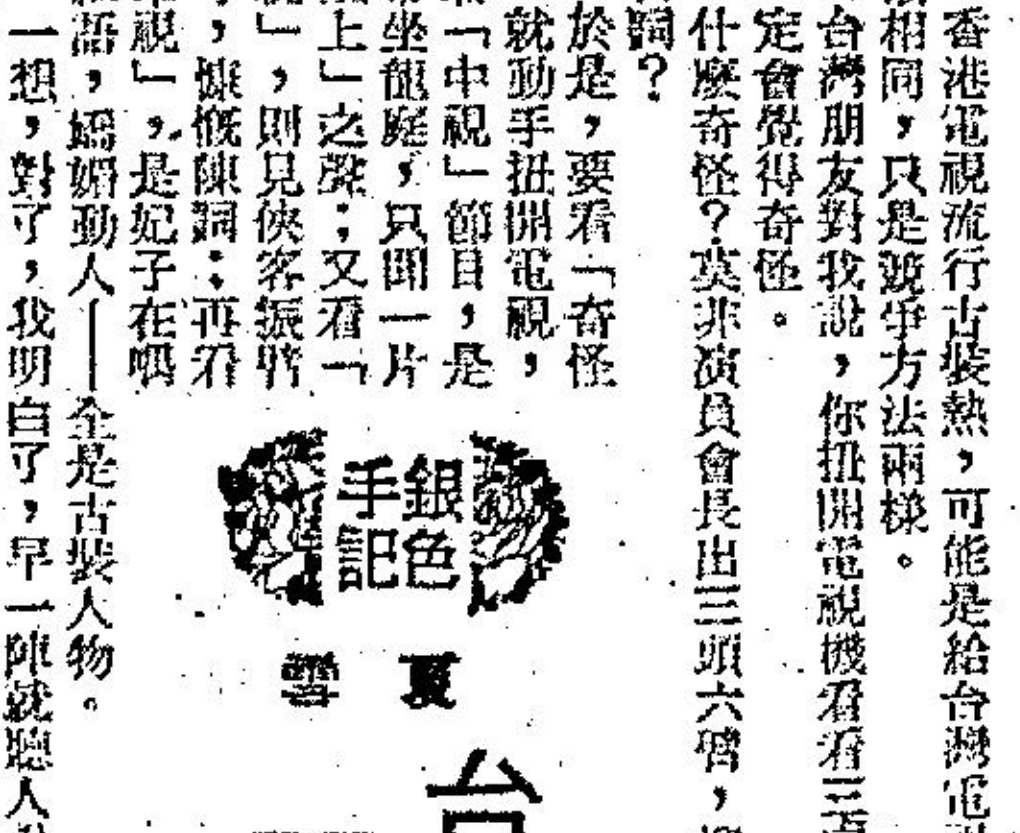 香港電視流行古裝熱，可能是給台灣電
相同，只是競爭方法兩樣。
台灣朋友對我說，你扭開電視機看看三
定會覺得奇怪。
什麼奇怪？莫非演員會長出三頭六臂，
詞？
於是，要看「奇怪
就動手扭開電視，
「中視」節目，是
坐龍庭，只聞一片
上」之聲；又看「
」，則見俠客振臂
，慷慨陳詞：再看
視」，是妃子在唱
語，嬌媚動人——全是古裝人物。
一想，對了，我明白了，早一陣就聽人
銀色
手記
夏雪
台